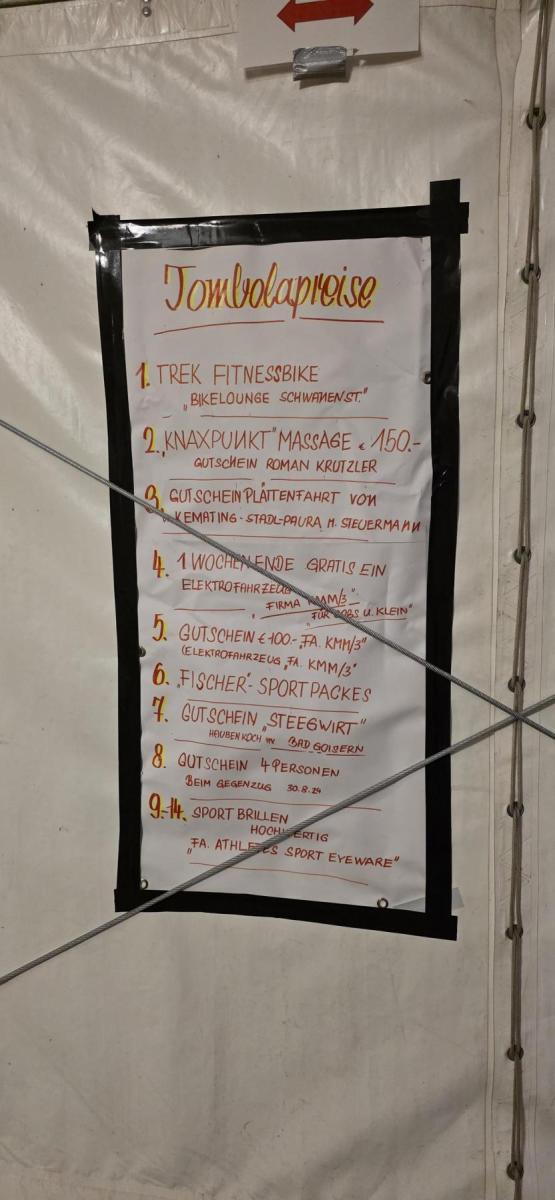 Tombolapreise
1. TREK FITNESSBIKE
„BIKELOUNGE SCHWANENST."
2. „KNAXPUNKT" MASSAGE € 150.-
GUTSCHEIN ROMAN KRUTZLER
3. GUTSCHEIN PLÄTTENFAHRT VON
KEMATING - STADL-PAURA M. STEUERMANN
4. 1 WOCHENENDE GRATIS EIN
ELEKTROFAHRZEUG
FIRMA KMM/3"
„FÜR BOBS U. KLEIN"
5. GUTSCHEIN € 100.- „FA. KMM/3"
(ELEKTROFAHRZEUG „FA. KMM/3"
6. „FISCHER"- SPORTPACKES
7. GUTSCHEIN „STEEGWIRT"
HAUBENKOCH IN BAD GOISERN
8. GUTSCHEIN 4 PERSONEN
BEIM GEGENZUG 30.8.24
9.-14. SPORT BRILLEN
HOCHWERTIG
„FA. ATHLETES SPORT EYEWARE"